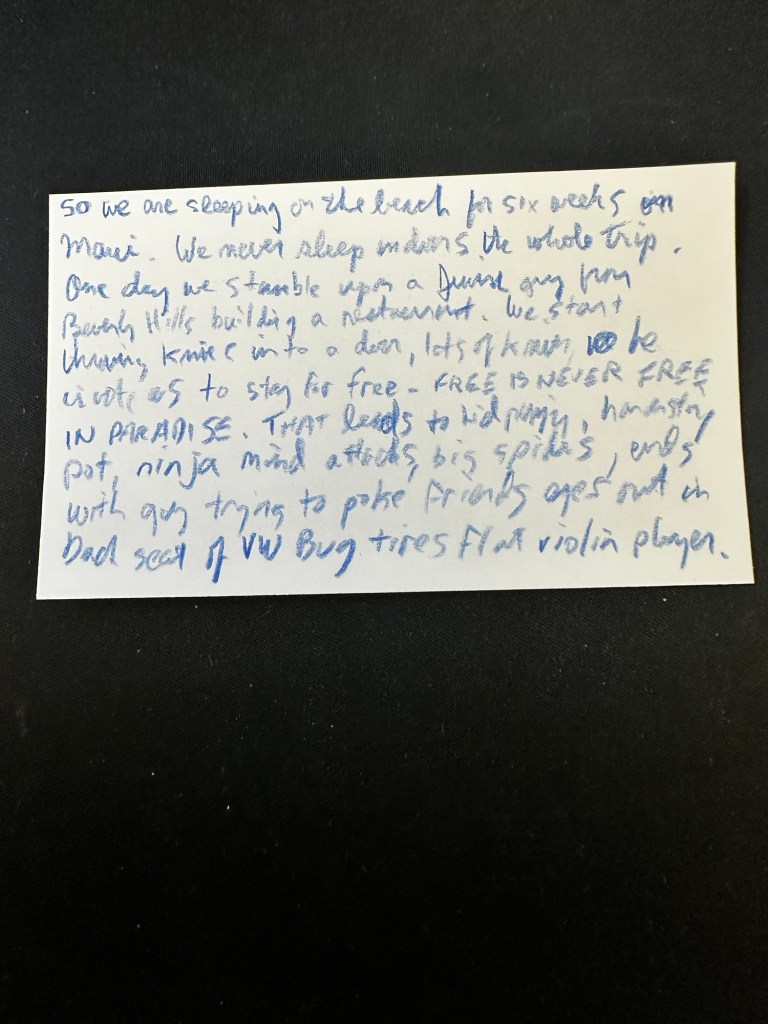 so we are sleeping on the beach for six weeks in
Maui. We never sleep indoors the whole trip.
One day we stumble upon a Jewish guy from
Beverly Hills building a restaurant. We start
throwing knives into a door, lots of knives, he
invites us to stay for free - FREE IS NEVER FREE
IN PARADISE. THAT leads to
pot, ninja mind attacks, big spiders, ends
with guy trying to poke friends eyes out in
back seat of VW Bug tires flat violin player.